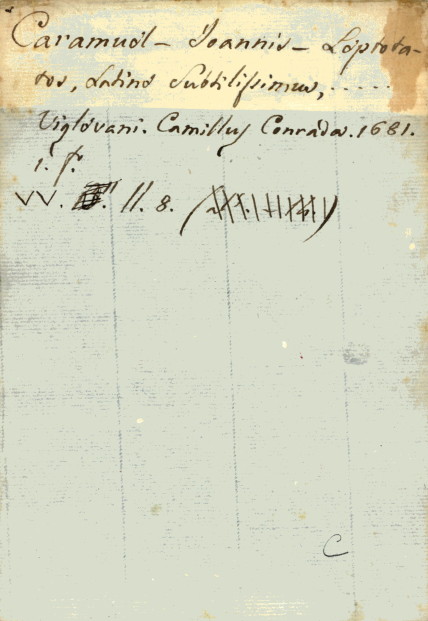 Caramuel - Joannis - Leptota-
tos, Latine Subtilissimus, .....
Viglevani. Camillus Conrada. 1681.
1. f.
VV. 11. 8.
C